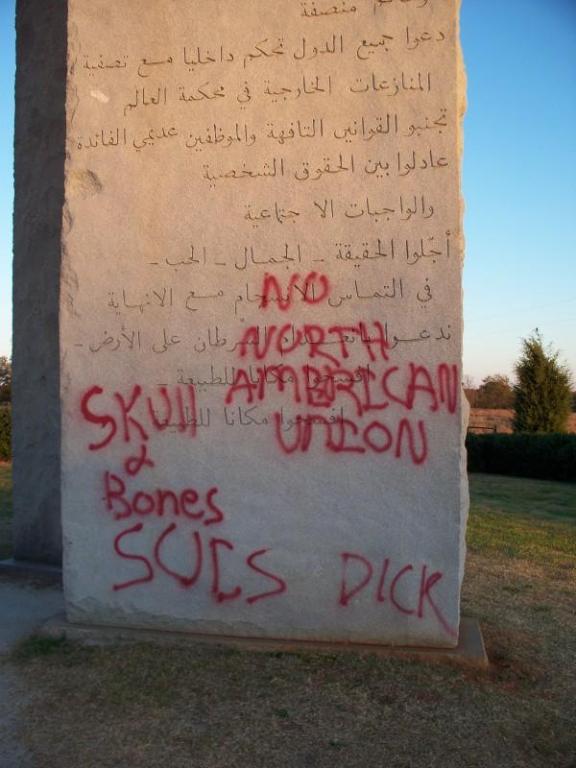 منصفة
دعوا جميع الدول تحكم داخليا مع تصفية
المنازعات الخارجية في محكمة العالم
تجنبو القوانين التافهة والموظفين عديمي الفائدة
عادلوا بين الحقوق الشخصية
والواجبات الا جتماعية
أجّلوا الحقيقة – الجمال – الحب –
في التماس الانسجام مع الانهاية
على الأرض –
افسحوا مكانا للطبيعة –
افسحوا مكانا للطبيعة
NO
NORTH
AMERICAN
UNION
SKUll
&
Bones
SUCS
DICK